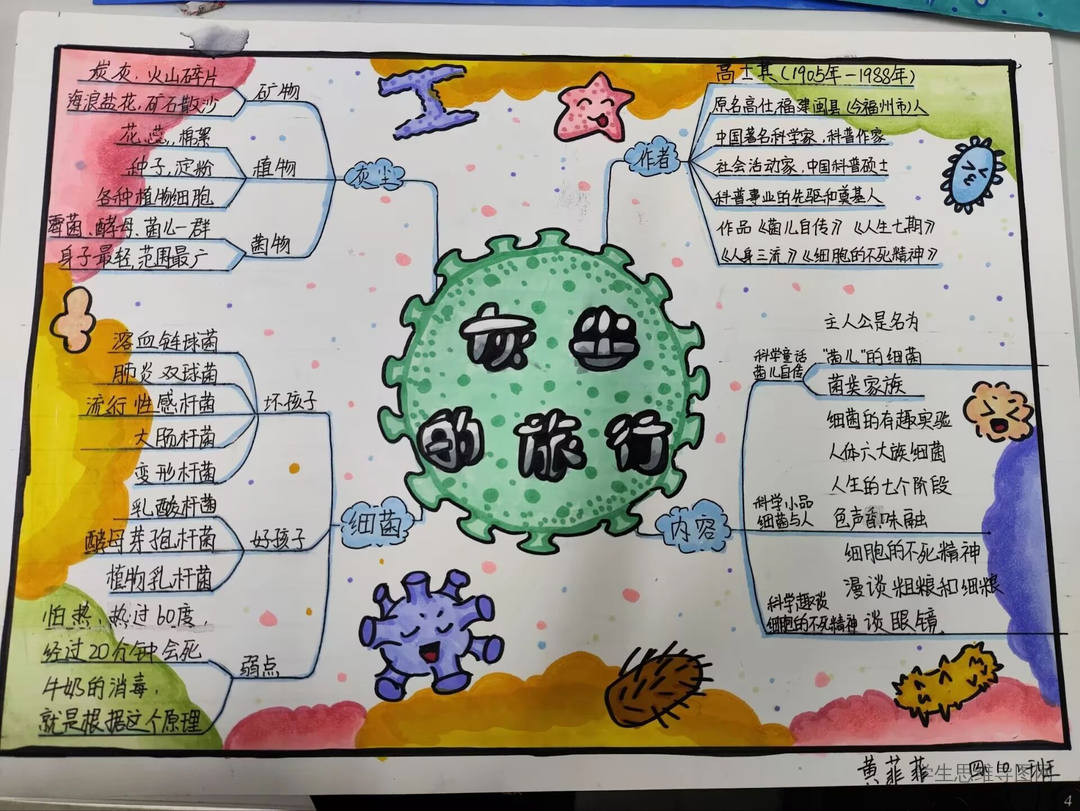 灰尘
的旅行
灰尘
矿物
炭灰、火山碎片
海浪盐花、矿石散沙
植物
花蕊、棉絮
种子,淀粉
各种植物细胞
菌物
霉菌、酵母、菌儿一群
身子最轻,范围最广
细菌
坏孩子
溶血链球菌
肺炎双球菌
流行性感杆菌
大肠杆菌
变形杆菌
好孩子
乳酸杆菌
酵母芽孢杆菌
植物乳杆菌
弱点
怕热,热过60度,
经过20分钟会死
牛奶的消毒,
就是根据这个原理
作者
高士其(1905年-1988年)
原名高仕,福建闽县(今福州市)人
中国著名科学家,科普作家
社会活动家,中国科普硕士
科普事业的先驱和奠基人
作品《菌儿自传》《人生七期》
《人身三流》《细胞的不死精神》
内容
科学童话
菌儿自传
主人公是名为
"菌儿"的细菌
菌类家族
科学小品
细菌与人
细菌的有趣实验
人体六大族细菌
人生的七个阶段
色声香味触
科学趣谈
细胞的不死精神
细胞的不死精神
漫谈粗粮和细粮
谈眼镜.
黄菲菲 四10班
学生思维导图
4